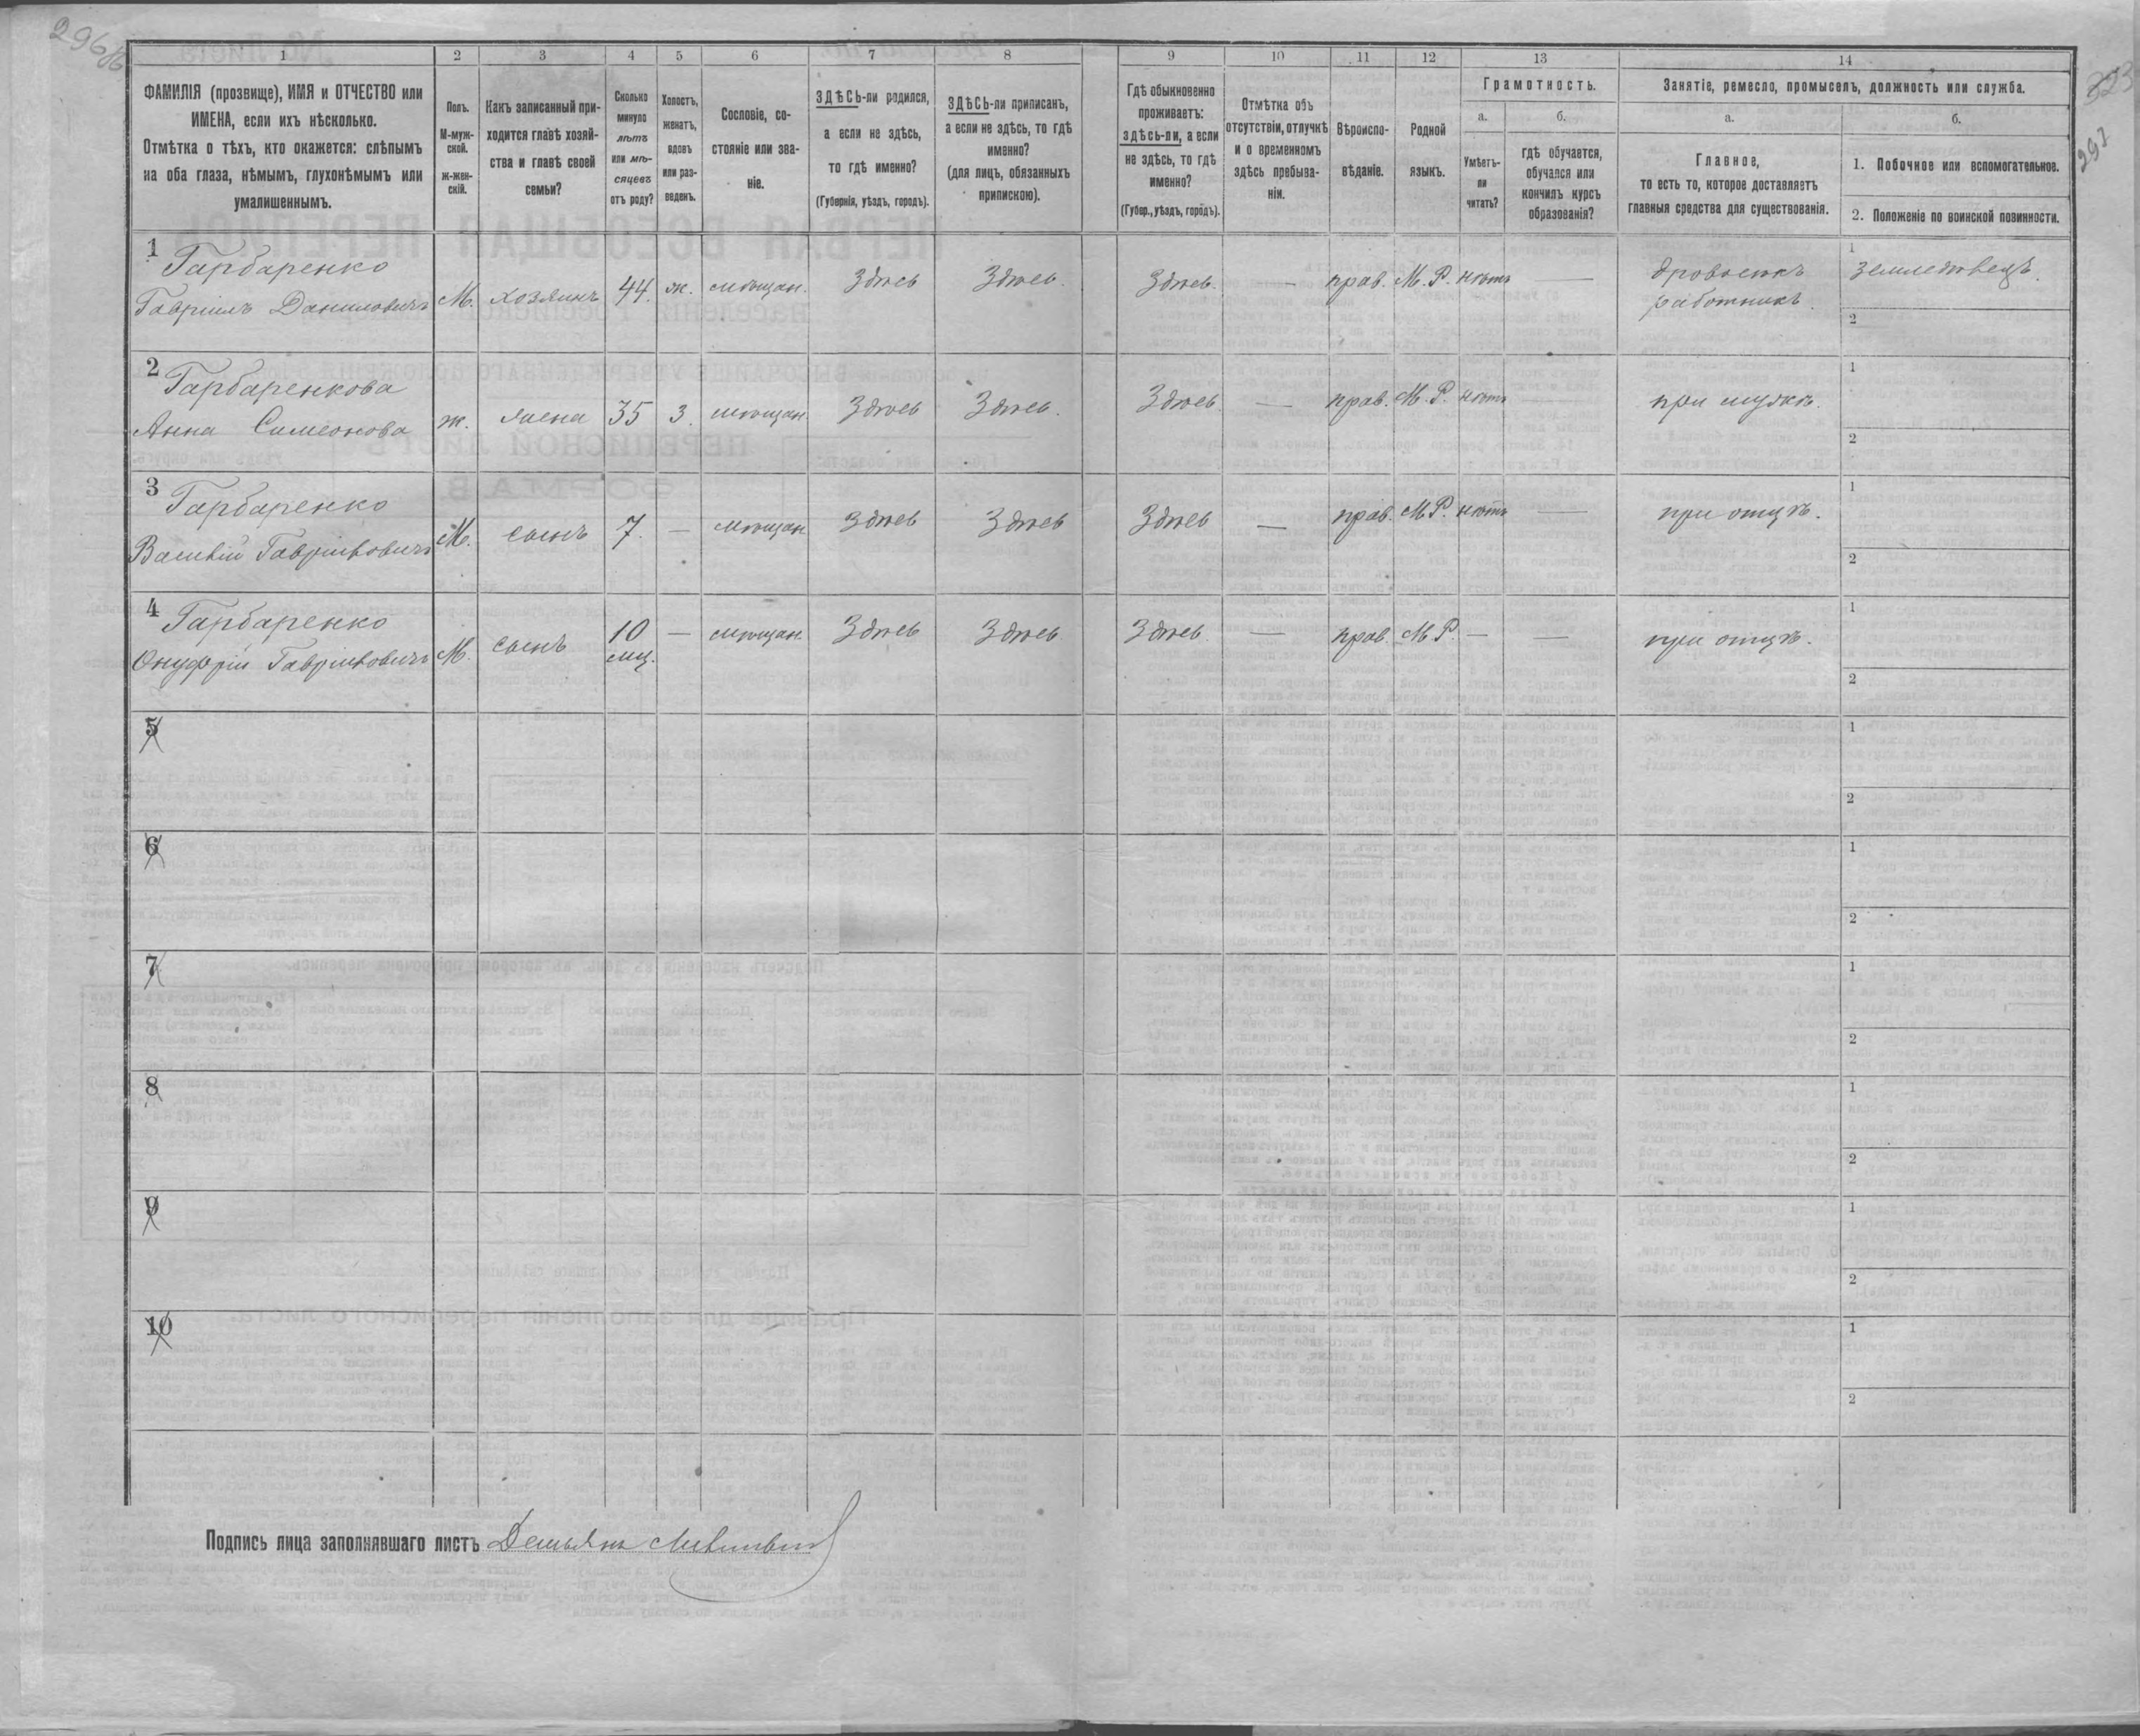 296об
323
297
1 2 3 4 5 6 7 8 9 10 11 12 13 14
ФАМИЛІЯ (прозвище), ИМЯ и ОТЧЕСТВО или
ИМЕНА, если ихъ нѣсколько.
Отмѣтка о тѣхъ, кто окажется: слѣпымъ
на оба глаза, нѣмымъ, глухонѣмымъ или
умалишеннымъ.
Полъ.
М-муж-
ской.
ж-жен-
скій.
Какъ записанный при-
ходится главѣ хозяй-
ства и главѣ своей
семьи?
Сколько
минуло
лѣтъ
или мѣ-
сяцевъ
отъ роду?
Холостъ,
женатъ,
вдовъ
или раз-
веденъ.
Сословіе, со-
стояніе или зва-
ніе.
ЗДѢСЬ-ли родился,
а если не здѣсь,
то гдѣ именно?
(Губернія, уѣздъ, городъ).
ЗДѢСЬ-ли приписанъ,
а если не здѣсь, то гдѣ
именно?
(для лицъ, обязанныхъ
припискою).
Гдѣ обыкновенно
проживаетъ:
здѣсь-ли, а если
не здѣсь, то гдѣ
именно?
(Губер., уѣздъ, городъ).
Отмѣтка объ
отсутствіи, отлучкѣ
и о временномъ
здѣсь пребыва-
ніи.
Вѣроиспо-
вѣданіе.
Родной
языкъ.
Грамотность.
а.
Умѣетъ-
ли
читать?
б.
гдѣ обучается,
обучался или
кончилъ курсъ
образованія?
Занятіе, ремесло, промыселъ, должность или служба.
а.
Главное,
то есть то, которое доставляетъ
главныя средства для существованія.
б.
1. Побочное или вспомогательное.
2. Положеніе по воинской повинности.
1 Гарбаренко
Гавріилъ Даниловичъ М. хозяинъ 44. ж. мѣщан. Здѣсь Здѣсь. Здѣсь. — прав. М.Р. нѣтъ — дровосекъ 1 земледѣлецъ.
работникъ. 2
2 Гарбаренкова
Анна Симеонова ж. жена 35 з. мѣщан. Здѣсь Здѣсь. Здѣсь. — прав. М.Р. нѣтъ — при мужѣ. 1
2
3 Гарбаренко
Василій Гавріиловичъ М. сынъ 7. — мѣщан. Здѣсь Здѣсь Здѣсь — прав. М.Р. нѣтъ — при отцѣ. 1
2
4 Гарбаренко
Онуфрій Гавріиловичъ М. сынъ 10 — мѣщан. Здѣсь Здѣсь. Здѣсь. — прав. М.Р. — — при отцѣ. 1
мц. 2
5 1
2
6 1
2
7 1
2
8 1
2
9 1
2
10 1
2
Подпись лица заполнявшаго листъ Демьянъ